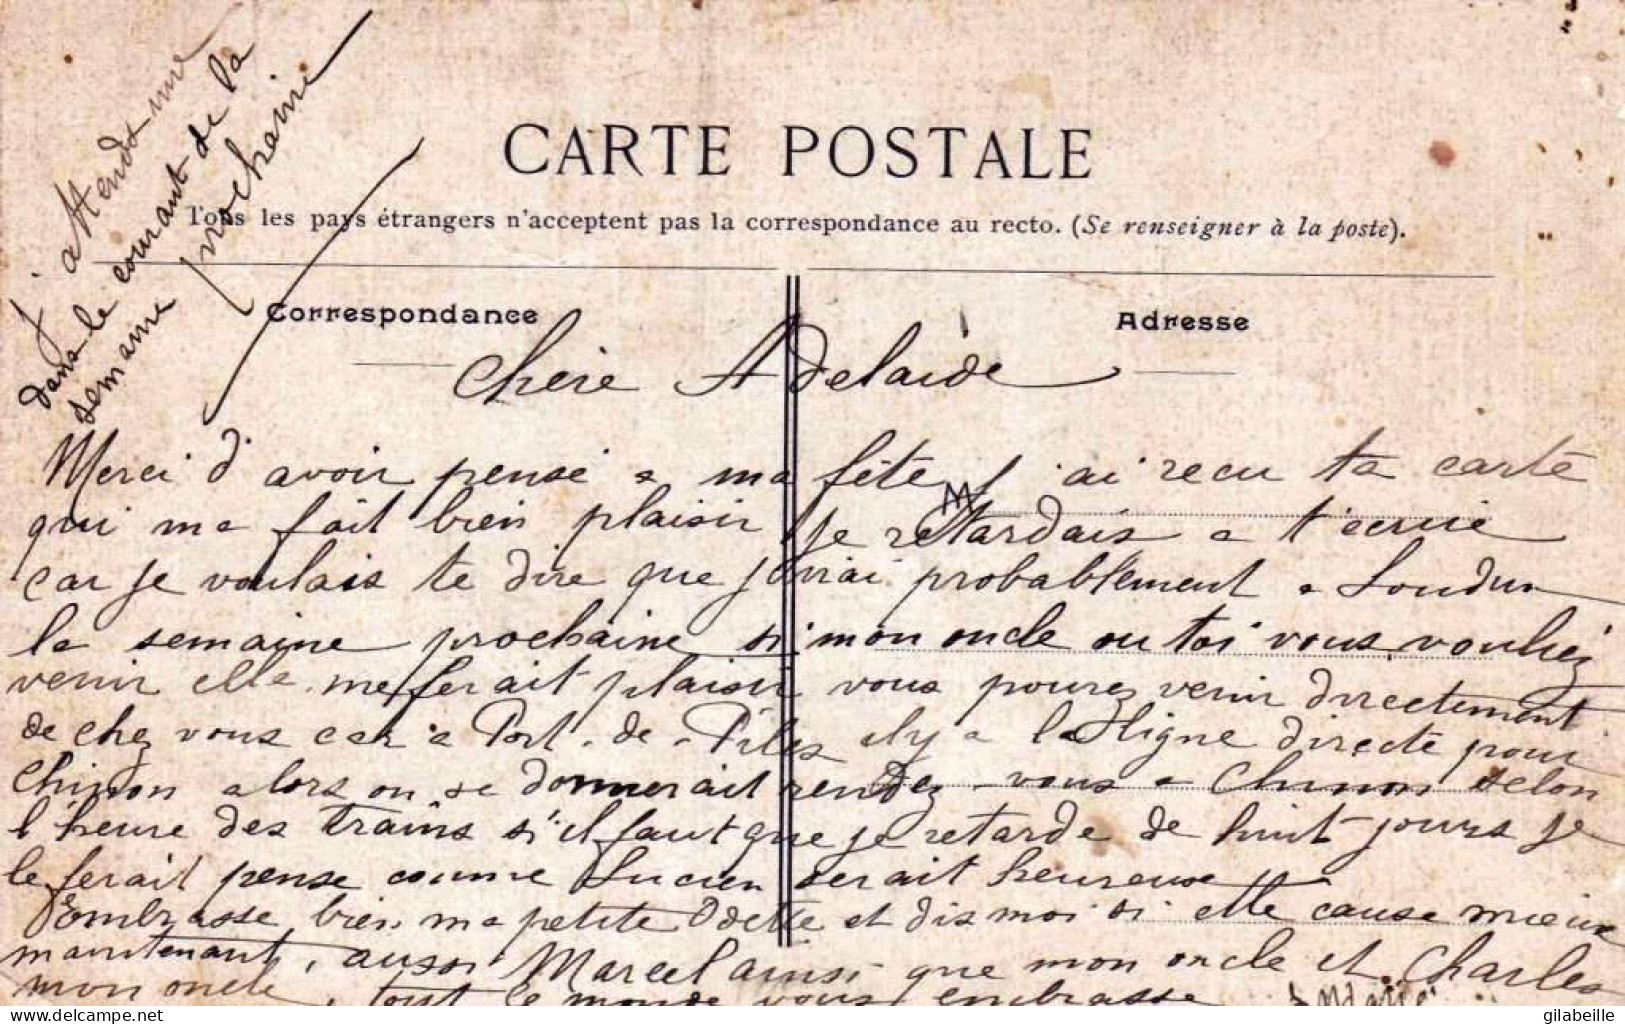 j'attends une
dans le courant de la
semaine prochaine
CARTE POSTALE
Tous les pays étrangers n'acceptent pas la correspondance au recto. (Se renseigner à la poste).
Correspondance
Adresse
Chère Adelaide
Merci d'avoir pensé a ma fête j'ai recu ta carte
qui ma fait bien plaisir je retardais a t'ecrire
car je voulais te dire que j'irai probablement a Loudun
la semaine prochaine si mon oncle ou toi vous vouliez
venir ella me ferait plaisir vous pourez venir directement
de chez vous car a Port-de-Piles il y a la ligne directe pour
Chinon alors on se donnerait rendez-vous a Chinon selon
l'heure des trains s'il faut que je retarde de huit jours je
le ferait pense comme Lucien serait heureuse
Embrasse bien ma petite Odette et dis moi si elle cause mieux
maintenant, aussi Marcel ainsi que mon oncle et Charles
mon oncle, tout le monde vous embrasse
gilabeille